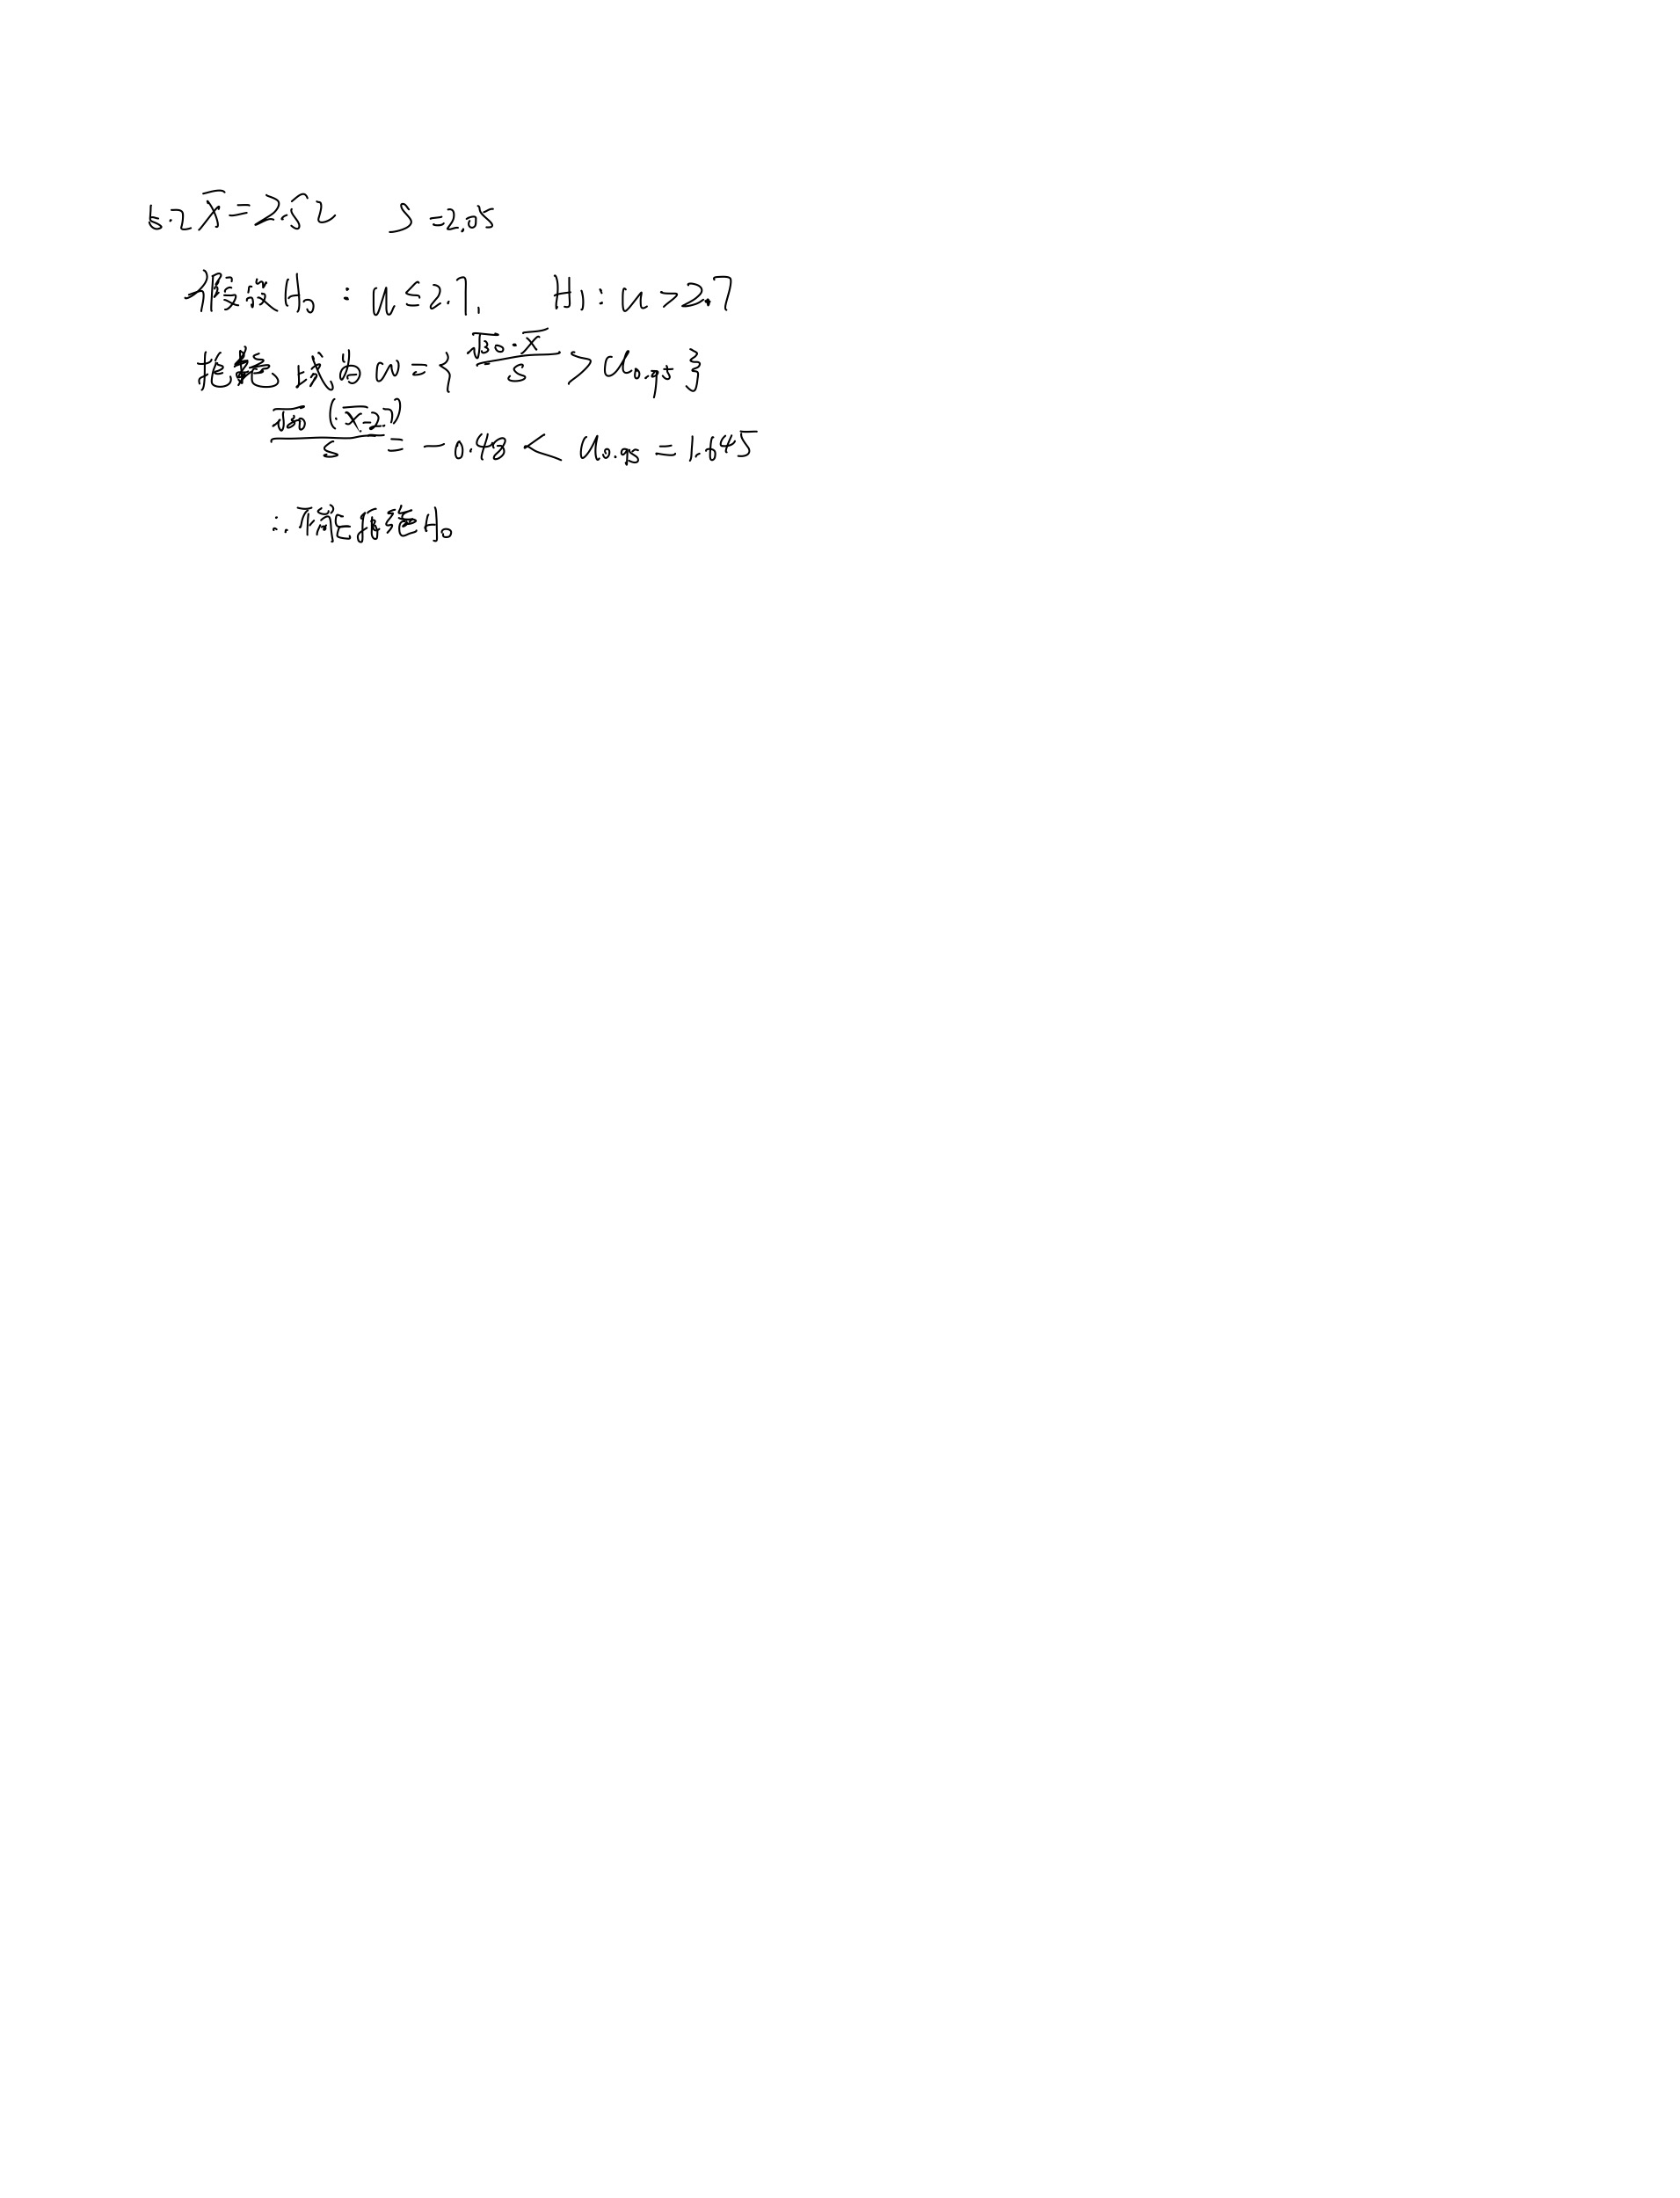 5.2 x̄=2.52 S=2.05
假设H₀:u≤2.7, H₁:u>2.7
拒绝域为 w={√30·x̄/S>u₀.₉₅}
√30(x̄-2.7)/S=-0.48<u₀.₉₅=1.645
∴不能拒绝H₀